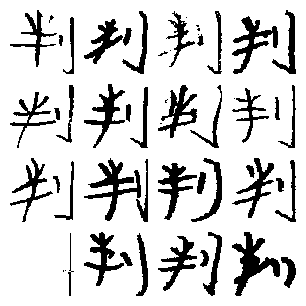 判判判判
判判判判
判判判判
判判判